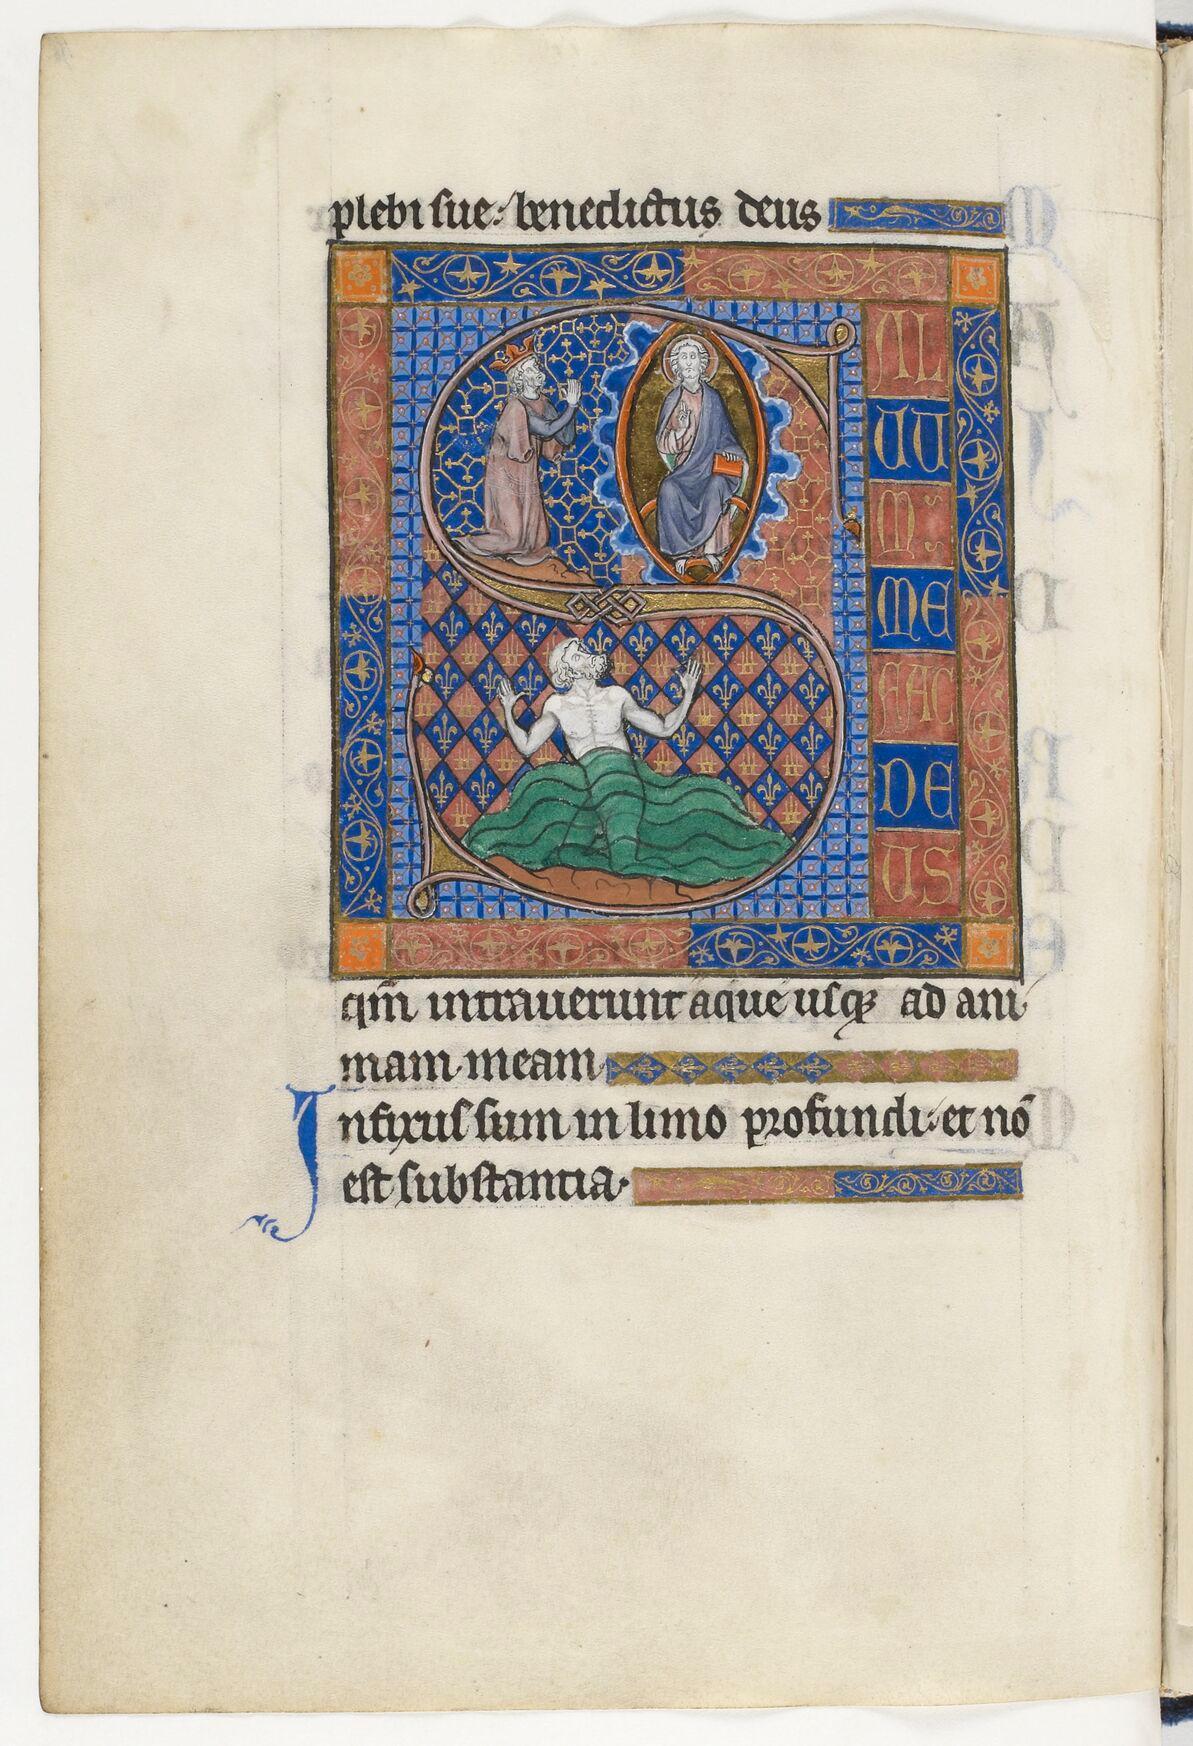 plebi sue: benedictus deus
S
AL
UU
M
ME
FAC
DE
US
qm̄ intrauerunt aque usqꝫ ad ani
mam meam.
Infixus sum in limo profundi: et nō
est substantia.